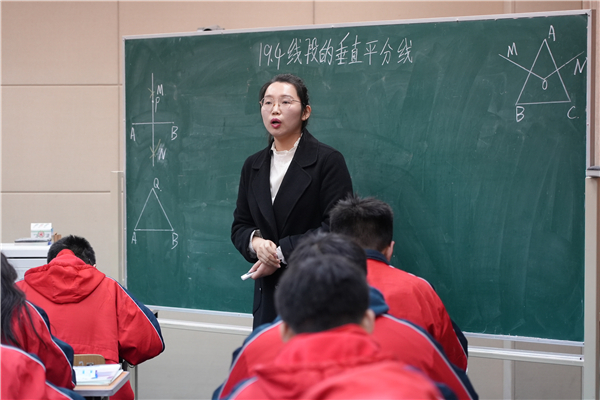 19.4 线段的垂直平分线
M
P
A B
N
Q
A B
A
M N
O
B C